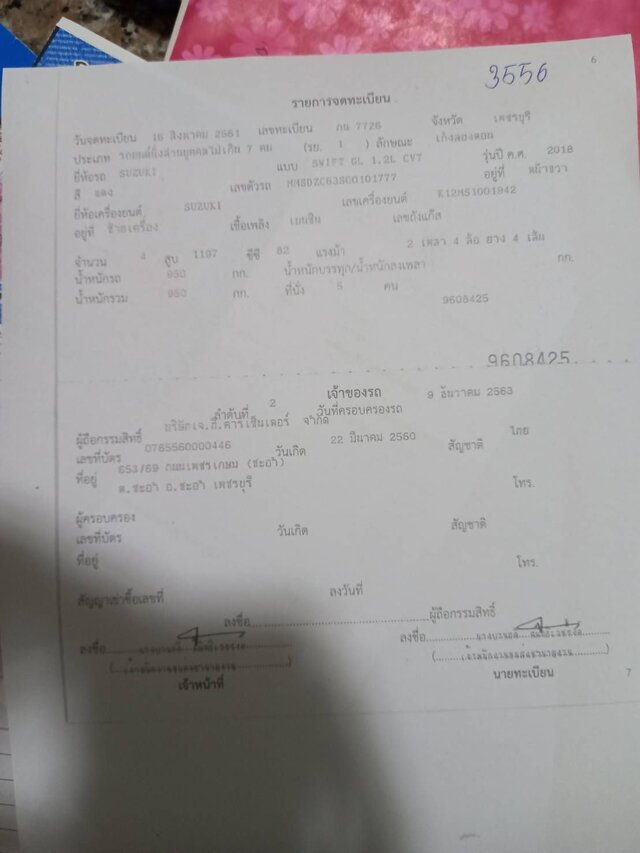 3556
6
รายการจดทะเบียน
วันจดทะเบียน 15 สิงหาคม 2561 เลขทะเบียน กน 7726 จังหวัด เพชรบุรี
ประเภท รถยนต์นั่งส่วนบุคคลไม่เกิน 7 คน (รย. 1 ) ลักษณะ เก๋งสองตอน
ยี่ห้อรถ SUZUKI แบบ SWIFT GL 1.2L CVT รุ่นปี ค.ศ. 2018
สี แดง เลขตัวรถ MMSDZC63S00101777 อยู่ที่ หน้าขวา
ยี่ห้อเครื่องยนต์ SUZUKI เลขเครื่องยนต์ K12MS1001942
อยู่ที่ ซ้ายเครื่อง เชื้อเพลิง เบนซิน เลขถังแก๊ส
จำนวน 4 สูบ 1197 ซีซี 82 แรงม้า 2 เพลา 4 ล้อ ยาง 4 เส้น
น้ำหนักรถ 950 กก. น้ำหนักบรรทุก/น้ำหนักลงเพลา กก.
น้ำหนักรวม 950 กก. ที่นั่ง 5 คน
9608425
9608425
เจ้าของรถ
ลำดับที่ 2 วันที่ครอบครองรถ 9 ธันวาคม 2563
ผู้ถือกรรมสิทธิ์ บริษัทเจ.ที.คาร์เซ็นเตอร์ จำกัด
เลขที่บัตร 0765560000446 วันเกิด 22 มีนาคม 2560 สัญชาติ ไทย
ที่อยู่ 653/89 ถนนเพชรเกษม (ชะอำ)
ต.ชะอำ อ.ชะอำ เพชรบุรี โทร.
ผู้ครอบครอง
เลขที่บัตร วันเกิด สัญชาติ
ที่อยู่ โทร.
สัญญาเช่าซื้อเลขที่ ลงวันที่
ลงชื่อ ผู้ถือกรรมสิทธิ์
ลงชื่อ ลงชื่อ
เจ้าหน้าที่ นายทะเบียน
7